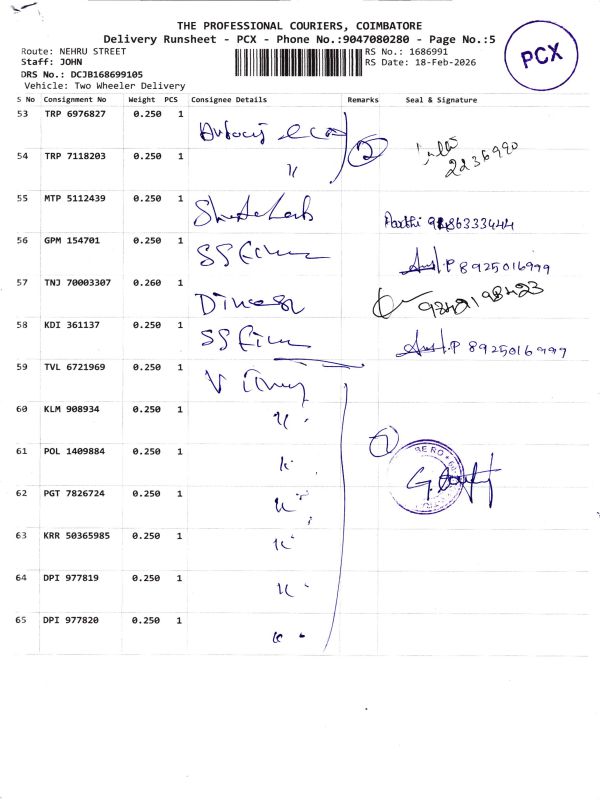 THE PROFESSIONAL COURIERS, COIMBATORE
Delivery Runsheet - PCX - Phone No.:9047080280 - Page No.:5
Route: NEHRU STREET
RS No.: 1686991
PCX
Staff: JOHN
RS Date: 18-Feb-2026
DRS No.: DCJB168699105
Vehicle: Two Wheeler Delivery
S No Consignment No Weight PCS Consignee Details Remarks Seal & Signature
53 TRP 6976827 0.250 1
54 TRP 7118203 0.250 1 " 2 2236990
55 MTP 5112439 0.250 1
56 GPM 154701 0.250 1 SS 8925016999
57 TNJ 70003307 0.260 1 9842198423
58 KDI 361137 0.250 1 SS 8925016999
59 TVL 6721969 0.250 1 V
60 KLM 908934 0.250 1 "
61 POL 1409884 0.250 1 "
62 PGT 7826724 0.250 1 "
63 KRR 50365985 0.250 1 "
64 DPI 977819 0.250 1 "
65 DPI 977820 0.250 1 "